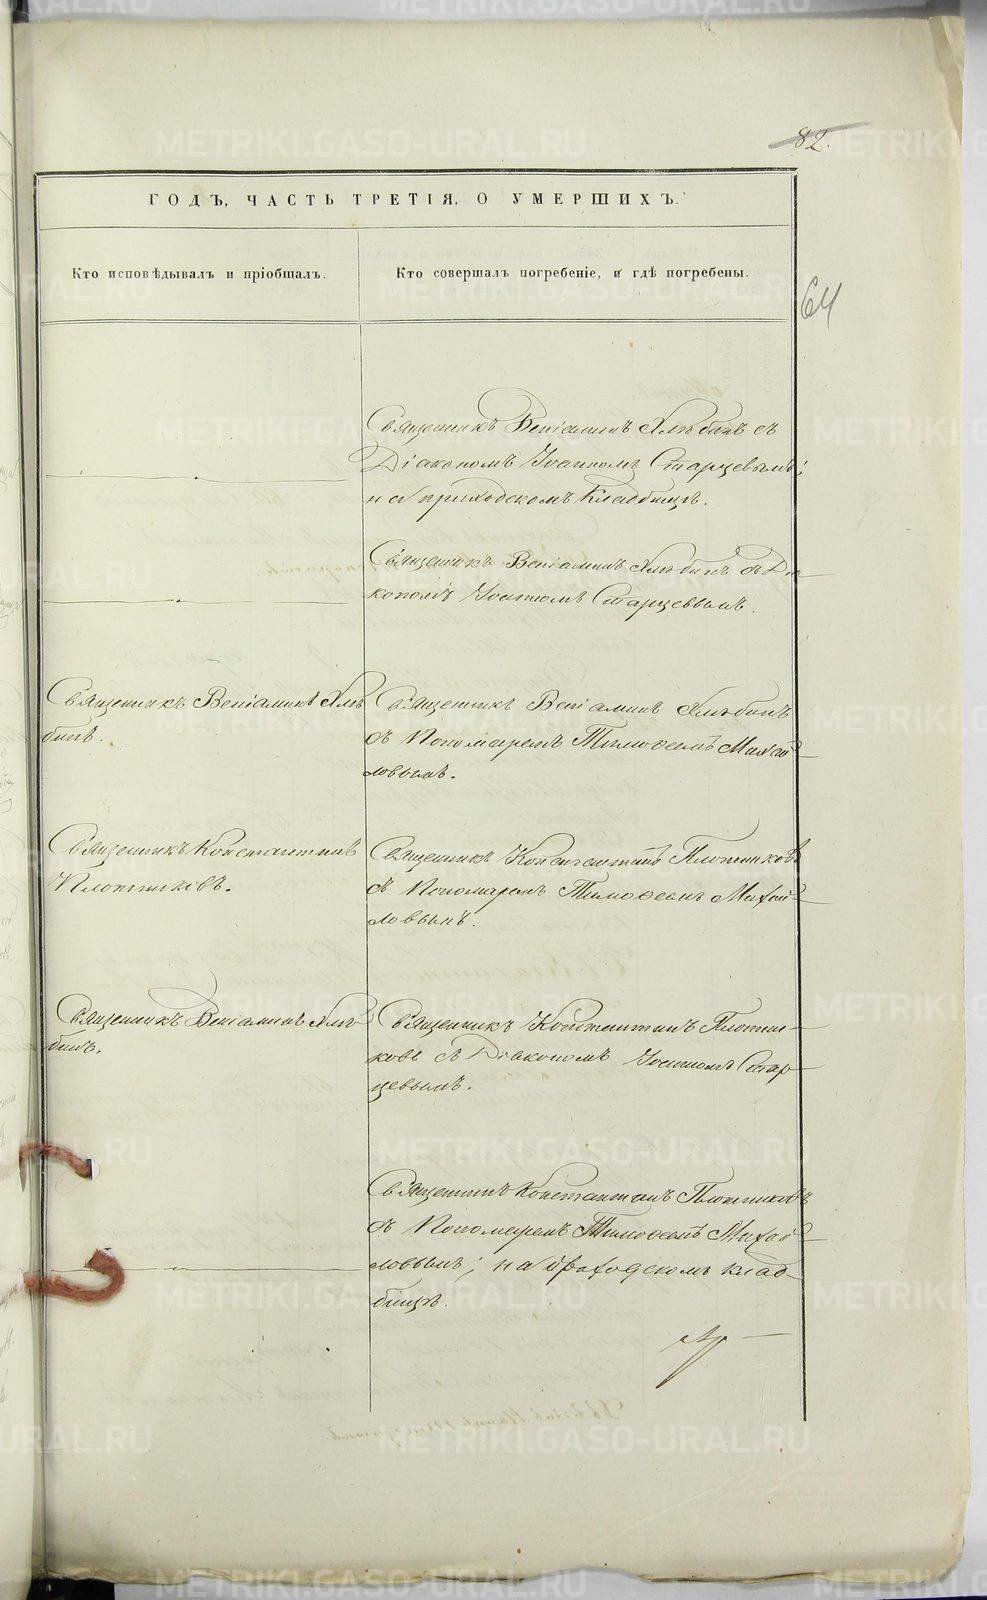 82.
ГОДЪ, ЧАСТЬ ТРЕТІЯ, О УМЕРШИХЪ.
Кто исповѣдывалъ и пріобщалъ.
Кто совершалъ погребеніе, и гдѣ погребены.
64
Священникъ Веніаминъ Хлѣбинъ съ
Діакономъ Іоанномъ Старцевымъ;
на приходскомъ кладбищѣ.
Священникъ Веніаминъ Хлѣбинъ съ Діа-
кономъ Іоанномъ Старцевымъ.
Священникъ Веніаминъ Хлѣ-
бинъ.
Священникъ Веніаминъ Хлѣбинъ
съ Пономаремъ Тимоѳеемъ Михай-
ловымъ.
Священникъ Константинъ
Плотниковъ.
Священникъ Константинъ Плотниковъ
съ Пономаремъ Тимоѳеемъ Михай-
ловымъ.
Священникъ Веніаминъ Хлѣ-
бинъ.
Священникъ Константинъ Плотни-
ковъ съ Діакономъ Іоанномъ Стар-
цевымъ.
Священникъ Константинъ Плотниковъ
съ Пономаремъ Тимоѳеемъ Михай-
ловымъ; на приходскомъ клад-
бищѣ.
METRIKI.GASO-URAL.RU